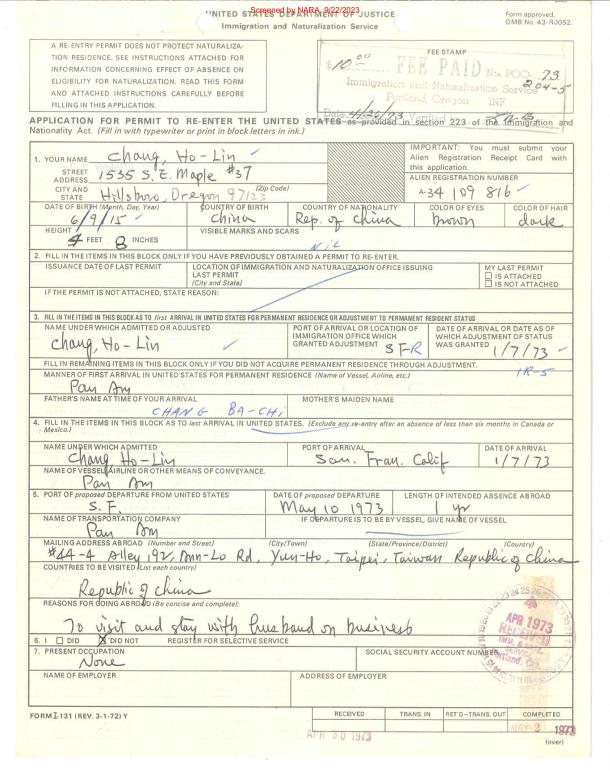 Screened by NARA, 9/22/2023
UNITED STATES DEPARTMENT OF JUSTICE
Immigration and Naturalization Service
Form approved.
OMB No. 43-R0052.
A RE-ENTRY PERMIT DOES NOT PROTECT NATURALIZA-
TION RESIDENCE. SEE INSTRUCTIONS ATTACHED FOR
INFORMATION CONCERNING EFFECT OF ABSENCE ON
ELIGIBILITY FOR NATURALIZATION. READ THIS FORM
AND ATTACHED INSTRUCTIONS CAREFULLY BEFORE
FILLING IN THIS APPLICATION.
FEE STAMP
$10.00 FEE PAID No. POO- 73
Immigration and Naturalization Service 204-5
Portland, Oregon INF
Date 4/26/73
APPLICATION FOR PERMIT TO RE-ENTER THE UNITED STATES as provided in section 223 of the Immigration and
Nationality Act. (Fill in with typewriter or print in block letters in ink.)
1. YOUR NAME Chang, Ho-Lin
STREET ADDRESS 1535 S.E. Maple #37
CITY AND STATE Hillsboro, Oregon 97123 (Zip Code)
IMPORTANT: You must submit your
Alien Registration Receipt Card with
this application.
ALIEN REGISTRATION NUMBER
A-34 109 816
DATE OF BIRTH (Month, Day, Year) COUNTRY OF BIRTH COUNTRY OF NATIONALITY COLOR OF EYES COLOR OF HAIR
6/9/15 China Rep. of China brown dark
HEIGHT VISIBLE MARKS AND SCARS
4 FEET 8 INCHES Nil
2. FILL IN THE ITEMS IN THIS BLOCK ONLY IF YOU HAVE PREVIOUSLY OBTAINED A PERMIT TO RE-ENTER.
ISSUANCE DATE OF LAST PERMIT LOCATION OF IMMIGRATION AND NATURALIZATION OFFICE ISSUING MY LAST PERMIT
LAST PERMIT IS ATTACHED
(City and State) IS NOT ATTACHED
IF THE PERMIT IS NOT ATTACHED, STATE REASON:
3. FILL IN THE ITEMS IN THIS BLOCK AS TO first ARRIVAL IN UNITED STATES FOR PERMANENT RESIDENCE OR ADJUSTMENT TO PERMANENT RESIDENT STATUS
NAME UNDER WHICH ADMITTED OR ADJUSTED PORT OF ARRIVAL OR LOCATION OF DATE OF ARRIVAL OR DATE AS OF
IMMIGRATION OFFICE WHICH WHICH ADJUSTMENT OF STATUS
GRANTED ADJUSTMENT WAS GRANTED
Chang, Ho-Lin SFR 1/7/73
FILL IN REMAINING ITEMS IN THIS BLOCK ONLY IF YOU DID NOT ACQUIRE PERMANENT RESIDENCE THROUGH ADJUSTMENT. IR-5
MANNER OF FIRST ARRIVAL IN UNITED STATES FOR PERMANENT RESIDENCE (Name of Vessel, Airline, etc.)
Pan Am
FATHER'S NAME AT TIME OF YOUR ARRIVAL MOTHER'S MAIDEN NAME
CHANG BA-CHI
4. FILL IN THE ITEMS IN THIS BLOCK AS TO last ARRIVAL IN UNITED STATES. (Exclude any re-entry after an absence of less than six months in Canada or
Mexico.)
NAME UNDER WHICH ADMITTED PORT OF ARRIVAL DATE OF ARRIVAL
Chang Ho-Lin San. Fran. Calif 1/7/73
NAME OF VESSEL, AIRLINE OR OTHER MEANS OF CONVEYANCE.
Pan Am
5. PORT OF proposed DEPARTURE FROM UNITED STATES DATE OF proposed DEPARTURE LENGTH OF INTENDED ABSENCE ABROAD
S.F. May 10 1973 1 yr
NAME OF TRANSPORTATION COMPANY IF DEPARTURE IS TO BE BY VESSEL, GIVE NAME OF VESSEL
Pan Am
MAILING ADDRESS ABROAD (Number and Street) (City/Town) (State/Province/District) (Country)
#44-4 Alley 192, Ann-Lo Rd, Yun-Ho, Taipei, Taiwan Republic of China
COUNTRIES TO BE VISITED (List each country)
Republic of China
REASONS FOR GOING ABROAD (Be concise and complete):
To visit and stay with husband on business
APR 1973
RECEIVED
6. I DID X DID NOT REGISTER FOR SELECTIVE SERVICE
7. PRESENT OCCUPATION SOCIAL SECURITY ACCOUNT NUMBER
None
NAME OF EMPLOYER ADDRESS OF EMPLOYER
FORM I-131 (REV. 3-1-72) Y
RECEIVED TRANS. IN RET'D-TRANS. OUT COMPLETED
APR 30 1973 MAY-2 1973
(over)